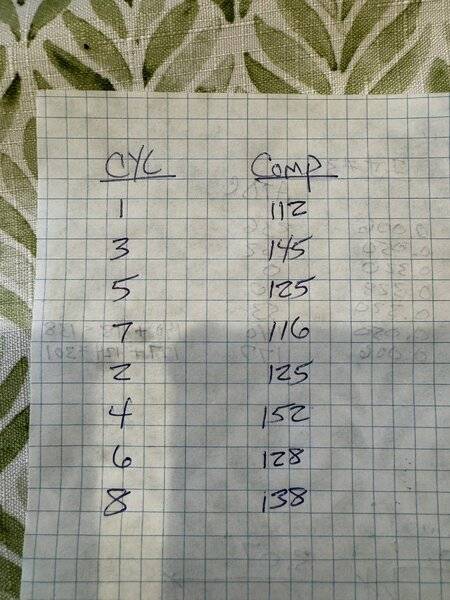 CYL Comp
1 112
3 145
5 125
7 116
2 125
4 152
6 128
8 138